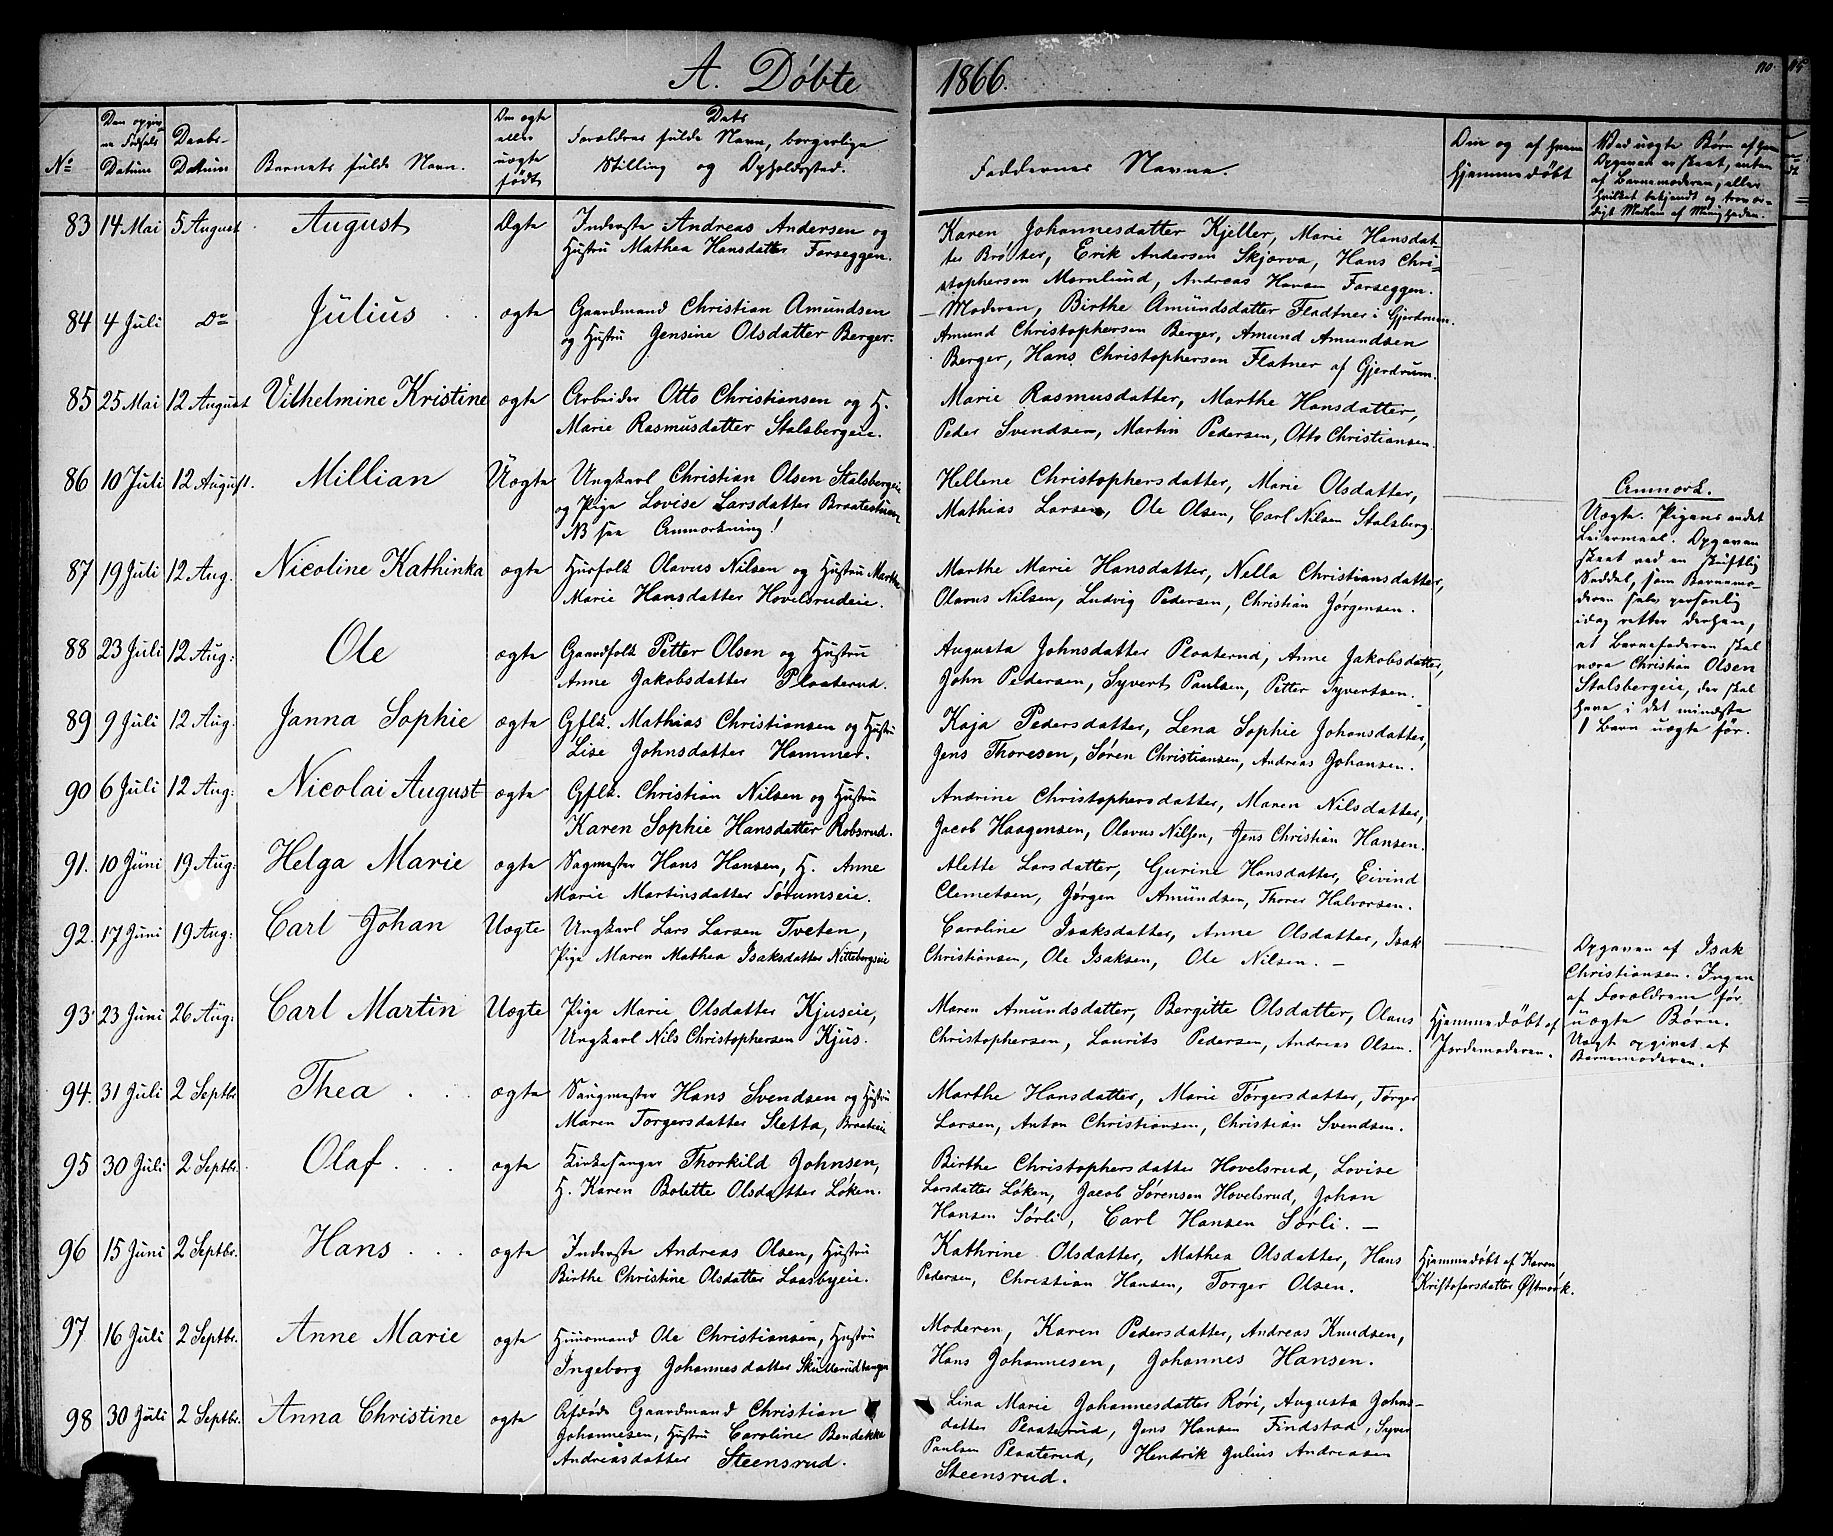 A. Døbte
1866.
110
No
Den opgivne Fødsels Datum
Daabs-Datum
Barnets fulde Navn.
Om ægte eller uægte født
Dets Forældres fulde Navn, borgerlige Stilling og Opholdssted.
Faddernes Navne.
Om og af hvem hjemmedøbt
Ved uægte Børn af hvem Opgaven er skeet, enten af Barnemoderen, eller
83 14 Mai 5 August August Ægte
Inderste Andreas Andersen og
Hustru Mathea Hansdatter Farseggen.
Karen Johannesdatter Kjeller, Marie Hansdat-
ter Brøter, Erik Andersen Skjærva, Hans Chri-
stophersen Mornlund, Andreas Hansen Farseggen.
84 4 Juli Do Julius ægte
Gaardmand Christian Amundsen
og Hustru Jensine Olsdatter Berger.
Moderen, Birthe Amundsdatter Fladtner i Gjerdrum.
Amund Christophersen Berger, Amund Amundsen
Berger, Hans Christophersen Flatner af Gjerdrum.
85 25 Mai 12 August Vilhelmine Kristine ægte
Arbeider Otto Christiansen og H.
Marie Rasmusdatter Stalsbergeie.
Marie Rasmusdatter, Marthe Hansdatter,
Peder Svendsen, Martin Pedersen, Otto Christiansen.
86 10 Juli 12 August. Millian Uægte
Ungkarl Christian Olsen Stalsbergeie
og Pige Lovise Larsdatter Braatestuen
NB see Anmærkning!
Hellene Christophersdatter, Marie Olsdatter,
Mathias Larsen, Ole Olsen, Carl Nilsen Stalsberg.
Anmærk.
Uægte. Pigens andet
Leiermaal. Opgaven
skeet ved en skriftlig
Seddel, som Barnemo-
deren selv personlig
idag retter derhen,
at Barnefaderen skal
være Christian Olsen
Stalsbergeie, der skal
have i det mindste
1 Barn uægte før.
87 19 Juli 12 Aug. Nicoline Kathinka ægte
Husfolk Olavus Nilsen og Hustru Marthe
Marie Hansdatter Hovelsrudeie.
Marthe Marie Hansdatter, Nella Christiansdatter,
Olavus Nilsen, Ludvig Pedersen, Christian Jørgensen.
88 23 Juli 12 Aug: Ole ægte
Gaardfolk Petter Olsen og Hustru
Anne Jakobsdatter Plaaterud.
Augusta Johnsdatter Plaaterud, Anne Jakobsdatter,
John Pedersen, Syvert Paulsen, Petter Syvertsen.
89 9 Juli 12 Aug: Janna Sophie ægte
Gflk. Mathias Christiansen og Hustru
Lise Johnsdatter Hammer.
Kaja Pedersdatter, Lena Sophie Johansdatter,
Jens Thoresen, Søren Christiansen, Andreas Johansen.
90 6 Juli 12 Aug: Nicolai August ægte
Gflk. Christian Nilsen og Hustru
Karen Sophie Hansdatter Robsrud.
Andrine Christophersdatter, Maren Nilsdatter,
Jacob Haagensen, Olavus Nilsen, Jens Christian Hansen.
91. 10 Juni 19 Aug: Helga Marie ægte
Sagmester Hans Hansen, H. Anne
Marie Martinsdatter Sørumseie.
Alette Larsdatter, Gurine Hansdatter, Eivind
Clemetsen, Jørgen Amundsen, Thorer Halvorsen.
92. 17 Juni 19 Aug: Carl Johan Uægte
Ungkarl Lars Larsen Tveten,
Pige Maren Mathea Isaksdatter Nittebergseie
Caroline Isaksdatter, Anne Olsdatter, Isak
Christiansen, Ole Isaksen, Ole Nilsen. —
Opgaven af Isak
Christiansen. Ingen
af Forældrene før
uægte Børn.
93. 23 Juni 26 Aug: Carl Martin Uægte
Pige Marie Olsdatter Kjuseie,
Ungkarl Nils Christophersen Kjus.
Maren Amundsdatter, Bergitte Olsdatter, Olaus
Christophersen, Laurits Pedersen, Andreas Olsen.
Hjemmedøbt af
Jordemoderen.
Uægt opgivet af
Barnemoderen.
94. 31 Juli 2 Septbr Thea ægte
Saugmester Hans Svendsen og Hustru
Maren Torgersdatter Sletta, Braateeie
Marthe Hansdatter, Marie Torgersdatter, Torger
Larsen, Anton Christiansen, Christian Svendsen.
95 30 Juli 2 Septbr. Olaf ægte
Kirkesanger Thorkild Johnsen,
H. Karen Bolette Olsdatter Løken.
Birthe Christophersdatter Hovelsrud, Lovise
Larsdatter Løken, Jacob Sørensen Hovelsrud, Johan
Hansen Sørli, Carl Hansen Sørli. —
96 15 Juni 2 Septbr. Hans ægte
Inderste Andreas Olsen, Hustru
Birthe Christine Olsdatter Laasbyeie.
Kathrine Olsdatter, Mathea Olsdatter, Hans
Pedersen, Christian Hansen, Torger Olsen.
Hjemmedøbt af Karen
Kristofersdatter Østmork.
97 16 Juli 2 Septbr. Anne Marie ægte
Huusmand Ole Christiansen, Hustru
Ingeborg Johannesdatter Skulterudtangen
Moderen, Karen Pedersdatter, Andreas Knudsen,
Hans Johannesen, Johannes Hansen.
98 30 Juli 2 Septbr. Anna Christine ægte
Afdøde Gaardmand Christian
Johannesen, Hustru Caroline Bendekke
Andreasdatter Steensrud.
Lina Marie Johannesdatter Røri, Augusta Johns-
datter Plaaterud, Jens Hansen Findstad, Syver
Paulsen Plaaterud, Hendrik Julius Andreasen
Steensrud.